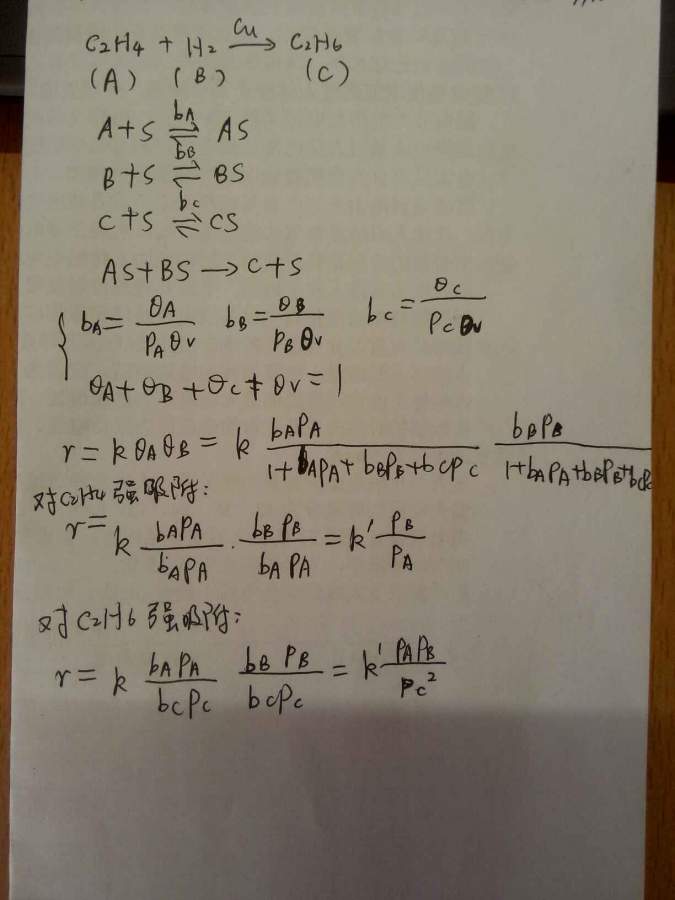 C₂H₄ + H₂ —Cu→ C₂H₆
(A) (B) (C)
A+S ⇌ AS bA
B+S ⇌ BS bB
C+S ⇌ CS bc
AS+BS → C+S
bA = θA / PAθv bB = θB / PBθv bc = θc / Pcθv
θA + θB + θc + θv = 1
r = kθAθB = k bAPA / 1+bAPA+bBPB+bcPc bBPB / 1+bAPA+bBPB+bcPc
对C₂H₄强吸附:
r = k bAPA / bAPA · bBPB / bAPA = k' PB / PA
对C₂H₆强吸附:
r = k bAPA / bcPc bBPB / bcPc = k' PAPB / Pc²